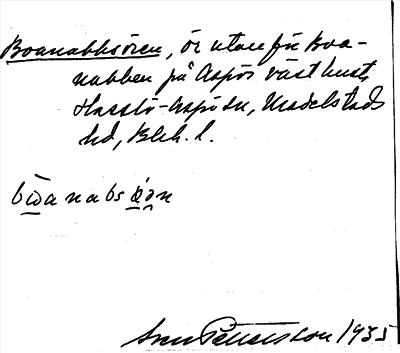 Boanabbsören, ör utanför Boa-
nabben på Aspös västkust,
Hasslö-Aspö sn, Medelstads
hd, Blek. l.
bωanabsøən
Sven Pettersson 1935